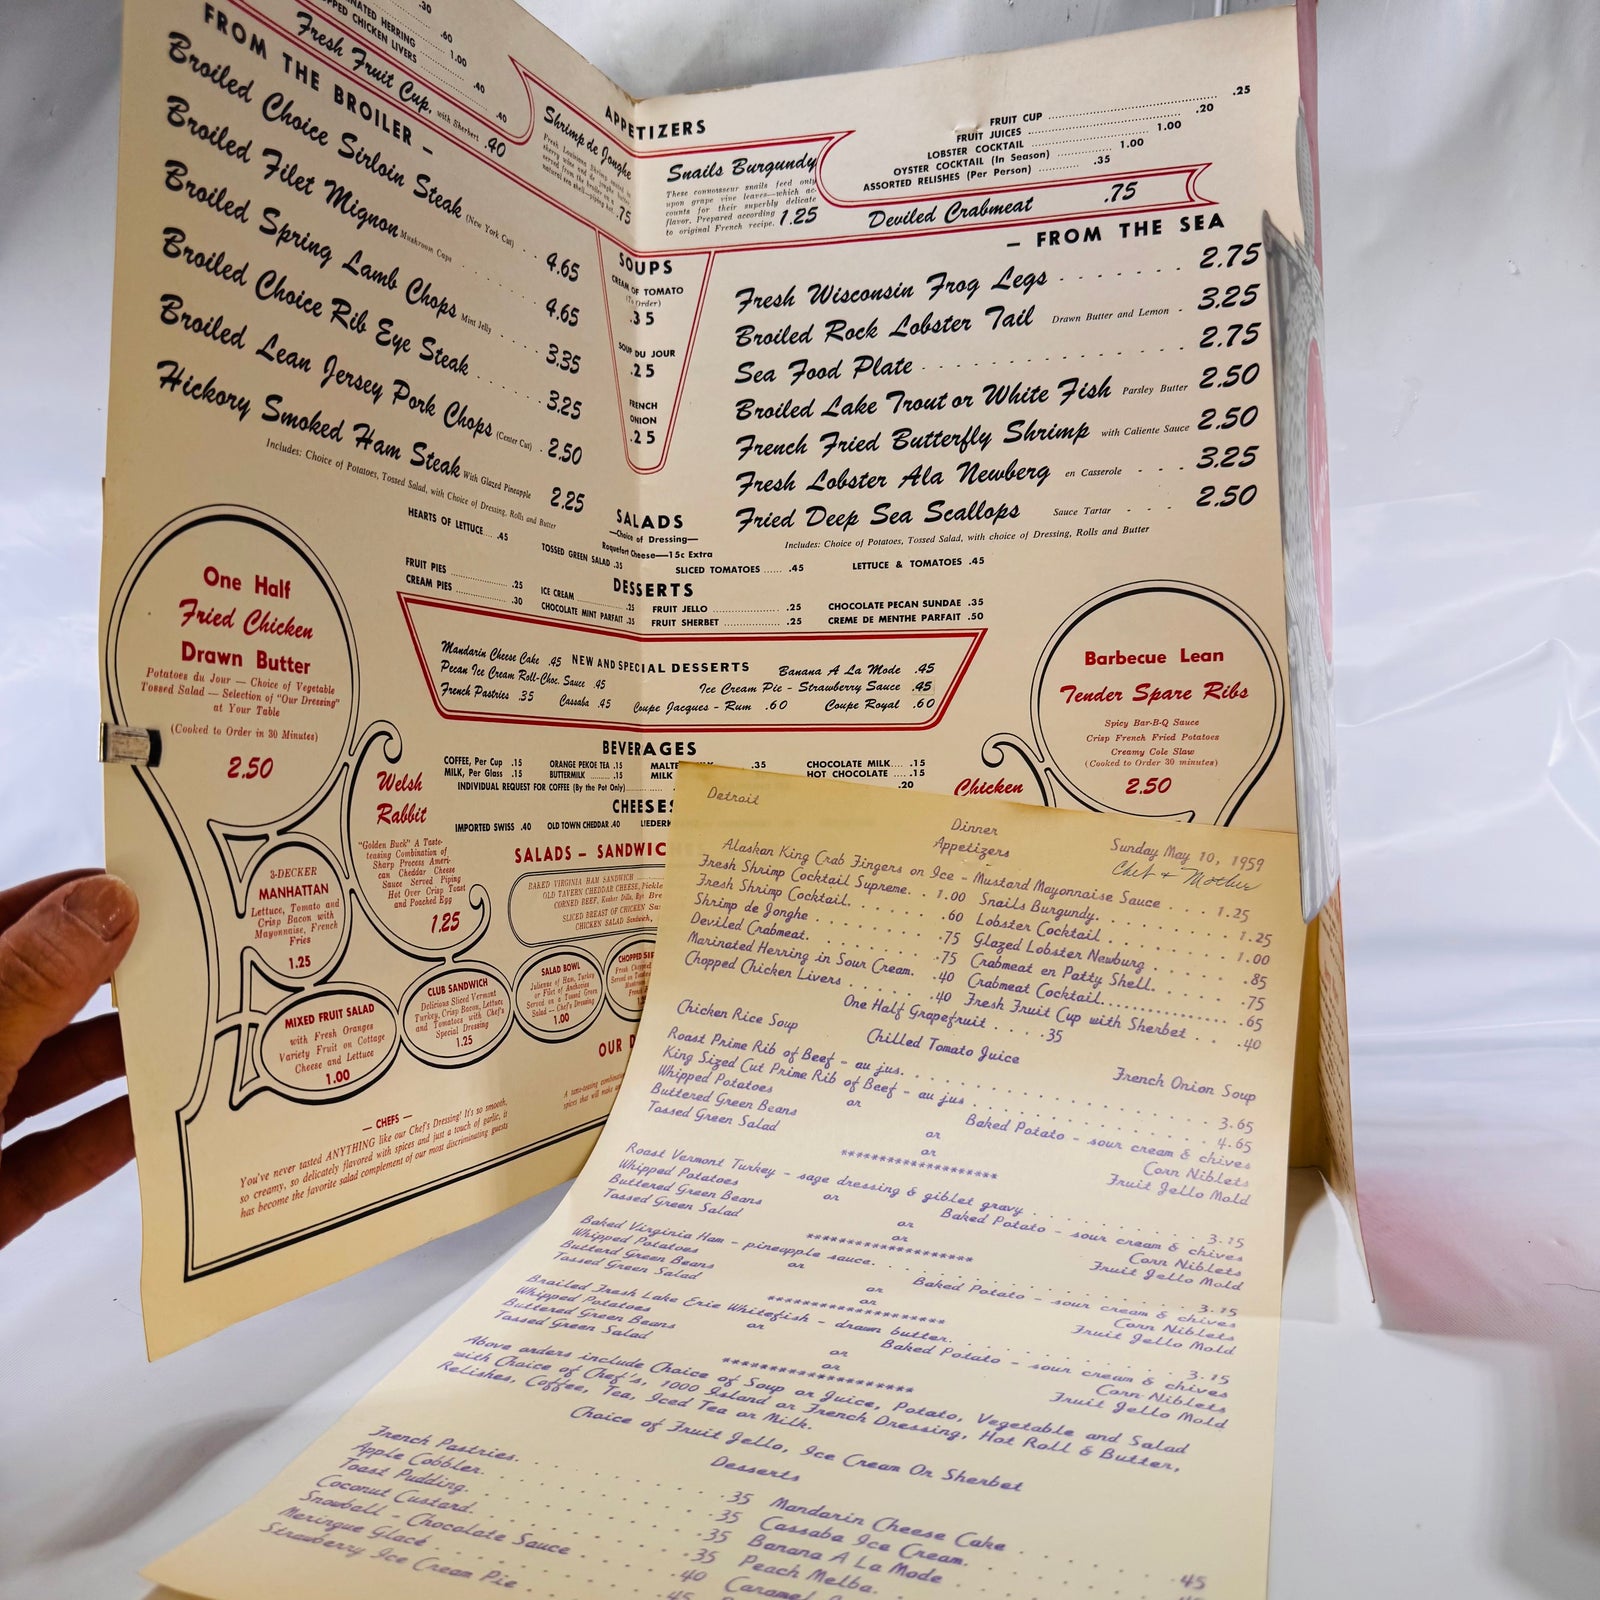 .30
.60
NATED HERRING
1.00
PPED CHICKEN LIVERS .40
Fresh Fruit Cup, with Sherbert .40
.40
APPETIZERS
Shrimp de Jonghe
.75
Snails Burgundy
These connoisseur snails feed only
upon grape vine leaves—which ac-
counts for their superbly delicate
flavor. Prepared according
to original French recipe. 1.25
FRUIT CUP .25
FRUIT JUICES .20
LOBSTER COCKTAIL 1.00
OYSTER COCKTAIL (In Season) 1.00
ASSORTED RELISHES (Per Person) .35
Deviled Crabmeat .75
FROM THE BROILER –
Broiled Choice Sirloin Steak (New York Cut) 4.65
Broiled Filet Mignon Mushroom Caps 4.65
Broiled Spring Lamb Chops Mint Jelly 3.35
Broiled Choice Rib Eye Steak 3.25
Broiled Lean Jersey Pork Chops (Center Cut) 2.50
Hickory Smoked Ham Steak With Glazed Pineapple 2.25
Includes: Choice of Potatoes, Tossed Salad, with Choice of Dressing, Rolls and Butter
SOUPS
CREAM OF TOMATO
(To Order)
.35
SOUP DU JOUR
.25
FRENCH
ONION
.25
– FROM THE SEA
Fresh Wisconsin Frog Legs 2.75
Broiled Rock Lobster Tail Drawn Butter and Lemon - 3.25
Sea Food Plate 2.75
Broiled Lake Trout or White Fish Parsley Butter 2.50
French Fried Butterfly Shrimp with Caliente Sauce 2.50
Fresh Lobster Ala Newberg en Casserole 3.25
Fried Deep Sea Scallops Sauce Tartar 2.50
Includes: Choice of Potatoes, Tossed Salad, with choice of Dressing, Rolls and Butter
SALADS
—Choice of Dressing—
Roquefort Cheese—15c Extra
HEARTS OF LETTUCE .45
TOSSED GREEN SALAD .35
SLICED TOMATOES .45
LETTUCE & TOMATOES .45
DESSERTS
FRUIT PIES .25
CREAM PIES .30
ICE CREAM .25
CHOCOLATE MINT PARFAIT .35
FRUIT JELLO .25
FRUIT SHERBET .25
CHOCOLATE PECAN SUNDAE .35
CREME DE MENTHE PARFAIT .50
NEW AND SPECIAL DESSERTS
Mandarin Cheese Cake .45
Pecan Ice Cream Roll-Choc. Sauce .45
French Pastries .35 Cassaba .45
Coupe Jacques - Rum .60
Banana A La Mode .45
Ice Cream Pie - Strawberry Sauce .45
Coupe Royal .60
BEVERAGES
COFFEE, Per Cup .15
MILK, Per Glass .15
ORANGE PEKOE TEA .15
BUTTERMILK .15
MALTE
MILK
.35
CHOCOLATE MILK .15
HOT CHOCOLATE .15
INDIVIDUAL REQUEST FOR COFFEE (By the Pot Only)
.20
CHEESE
IMPORTED SWISS .40 OLD TOWN CHEDDAR .40 LIEDERK
SALADS – SANDWIC
BAKED VIRGINIA HAM SANDWICH
OLD TAVERN CHEDDAR CHEESE, Pickle
CORNED BEEF, Kosher Dills, Rye Bre
SLICED BREAST OF CHICKEN Sa
CHICKEN SALAD Sandwich,
One Half
Fried Chicken
Drawn Butter
Potatoes du Jour — Choice of Vegetable
Tossed Salad — Selection of "Our Dressing"
at Your Table
(Cooked to Order in 30 Minutes)
2.50
Welsh
Rabbit
"Golden Buck" A Taste-
teasing Combination of
Sharp Process Ameri-
can Cheddar Cheese
Sauce Served Piping
Hot Over Crisp Toast
and Poached Egg
1.25
3-DECKER
MANHATTAN
Lettuce, Tomato and
Crisp Bacon with
Mayonnaise, French
Fries
1.25
MIXED FRUIT SALAD
with Fresh Oranges
Variety Fruit on Cottage
Cheese and Lettuce
1.00
CLUB SANDWICH
Delicious Sliced Vermont
Turkey, Crisp Bacon, Lettuce
and Tomatoes with Chef's
Special Dressing
1.25
SALAD BOWL
Julienne of Ham, Turkey
or Filet of Anchovies
Served on a Tossed Green
Salad — Chef's Dressing
1.00
CHOPPED SIR
OUR D
— CHEFS —
You've never tasted ANYTHING like our Chef's Dressing! It's so smooth,
so creamy, so delicately flavored with spices and just a touch of garlic, it
has become the favorite salad complement of our most discriminating guests
Barbecue Lean
Tender Spare Ribs
Spicy Bar-B-Q Sauce
Crisp French Fried Potatoes
Creamy Cole Slaw
(Cooked to Order 30 minutes)
2.50
Chicken
Detroit
Dinner
Sunday May 10, 1959
Chet + Mother
Appetizers
Alaskan King Crab Fingers on Ice - Mustard Mayonnaise Sauce . . . 1.25
Fresh Shrimp Cocktail Supreme. . 1.00 Snails Burgundy. 1.25
Fresh Shrimp Cocktail. .60 Lobster Cocktail 1.00
Shrimp de Jonghe .75 Glazed Lobster Newburg .85
Deviled Crabmeat. .75 Crabmeat en Patty Shell. .75
Marinated Herring in Sour Cream. .40 Crabmeat Cocktail .65
Chopped Chicken Livers .40 Fresh Fruit Cup with Sherbet .40
One Half Grapefruit .35
Chicken Rice Soup Chilled Tomato Juice French Onion Soup
Roast Prime Rib of Beef - au jus. 3.65
King Sized Cut Prime Rib of Beef - au jus 4.65
Whipped Potatoes or Baked Potato - sour cream & chives
Buttered Green Beans or Corn Niblets
Tossed Green Salad or Fruit Jello Mold
********************
Roast Vermont Turkey - sage dressing & giblet gravy 3.15
Whipped Potatoes or Baked Potato - sour cream & chives
Buttered Green Beans or Corn Niblets
Tossed Green Salad or Fruit Jello Mold
********************
Baked Virginia Ham - pineapple sauce. 3.15
Whipped Potatoes or Baked Potato - sour cream & chives
Butterd Green Beans or Corn Niblets
Tossed Green Salad or Fruit Jello Mold
********************
Broiled Fresh Lake Erie Whitefish - drawn butter. 3.15
Whipped Potatoes or Baked Potato - sour cream & chives
Buttered Green Beans or Corn Niblets
Tossed Green Salad or Fruit Jello Mold
********************
Above orders include Choice of Soup or Juice, Potato, Vegetable and Salad
with Choice of Chef's, 1000 Island or French Dressing, Hot Roll & Butter,
Relishes, Coffee, Tea, Iced Tea or Milk.
Choice of Fruit Jello, Ice Cream Or Sherbet
Desserts
French Pastries. .35 Mandarin Cheese Cake .45
Apple Cobbler. .35 Cassaba Ice Cream.
Toast Pudding. .35 Banana A La Mode
Coconut Custard. .35 Peach Melba.
Snowball - Chocolate Sauce .40 Caramel
Meringue Glacé .45
Strawberry Ice Cream Pie